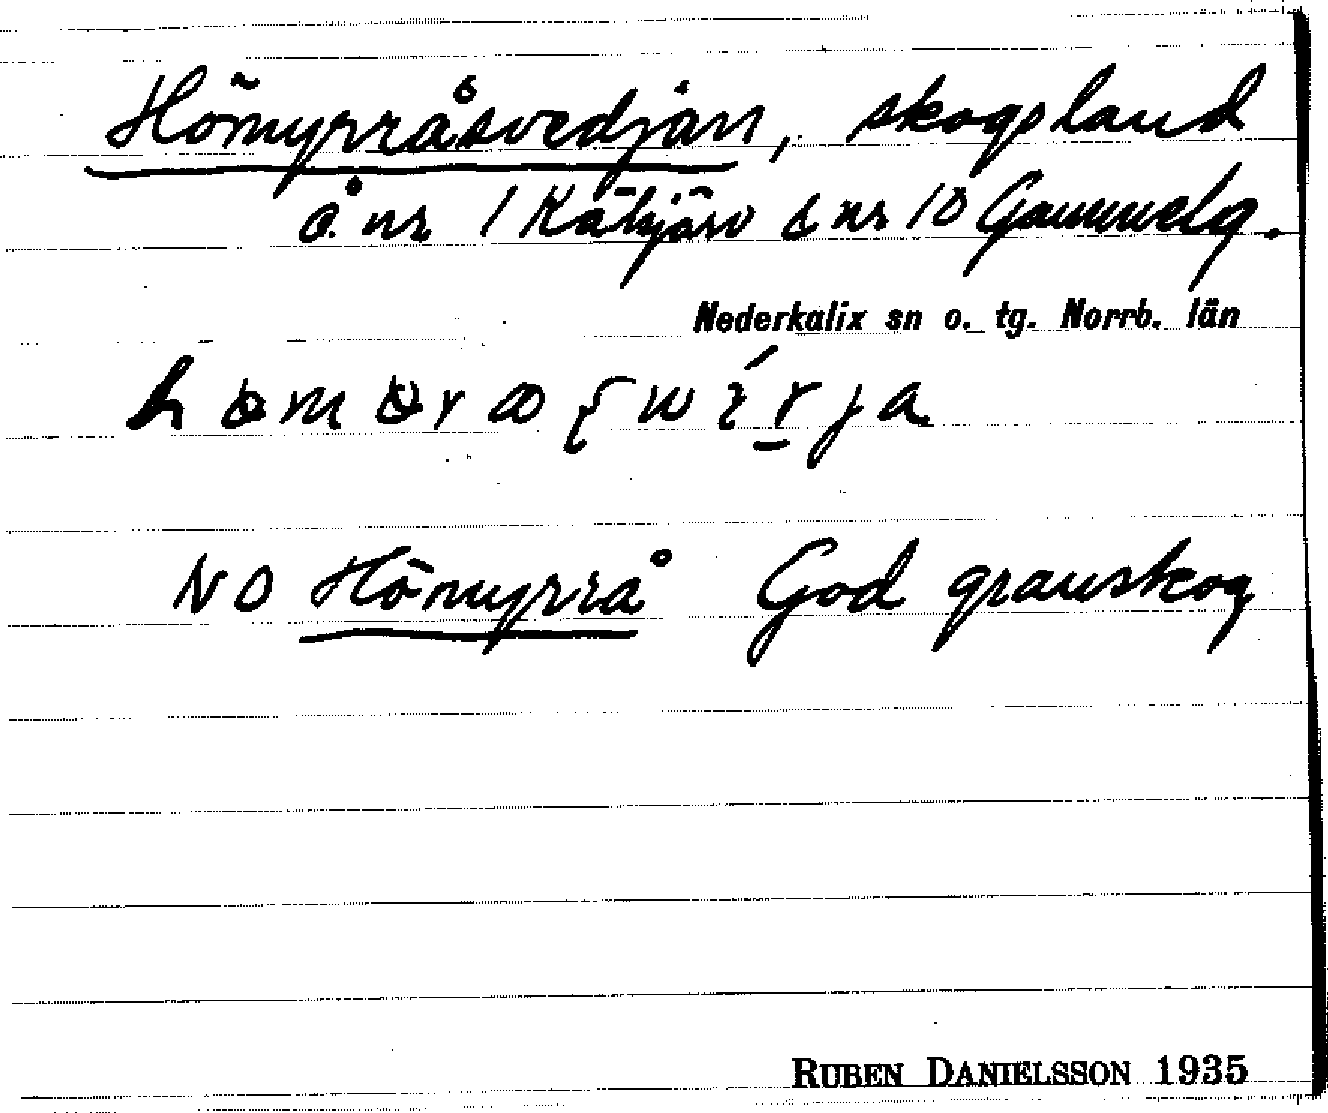 Hömyrråsvedjan, skogsland
å nr 1 Kätjärv & nr 10 Gammelg.
Nederkalix sn o. tg. Norrb. län
NO Hömyrrå God granskog
RUBEN DANIELSSON 1935